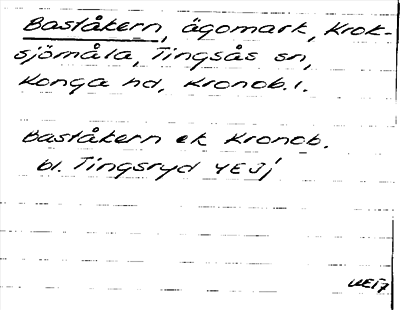 Baståkern, ägomark, Krok-
sjömåla, Tingsås sn,
Konga hd, Kronob. l.
Baståkern ek Kronob.
bl. Tingsryd 4E3j